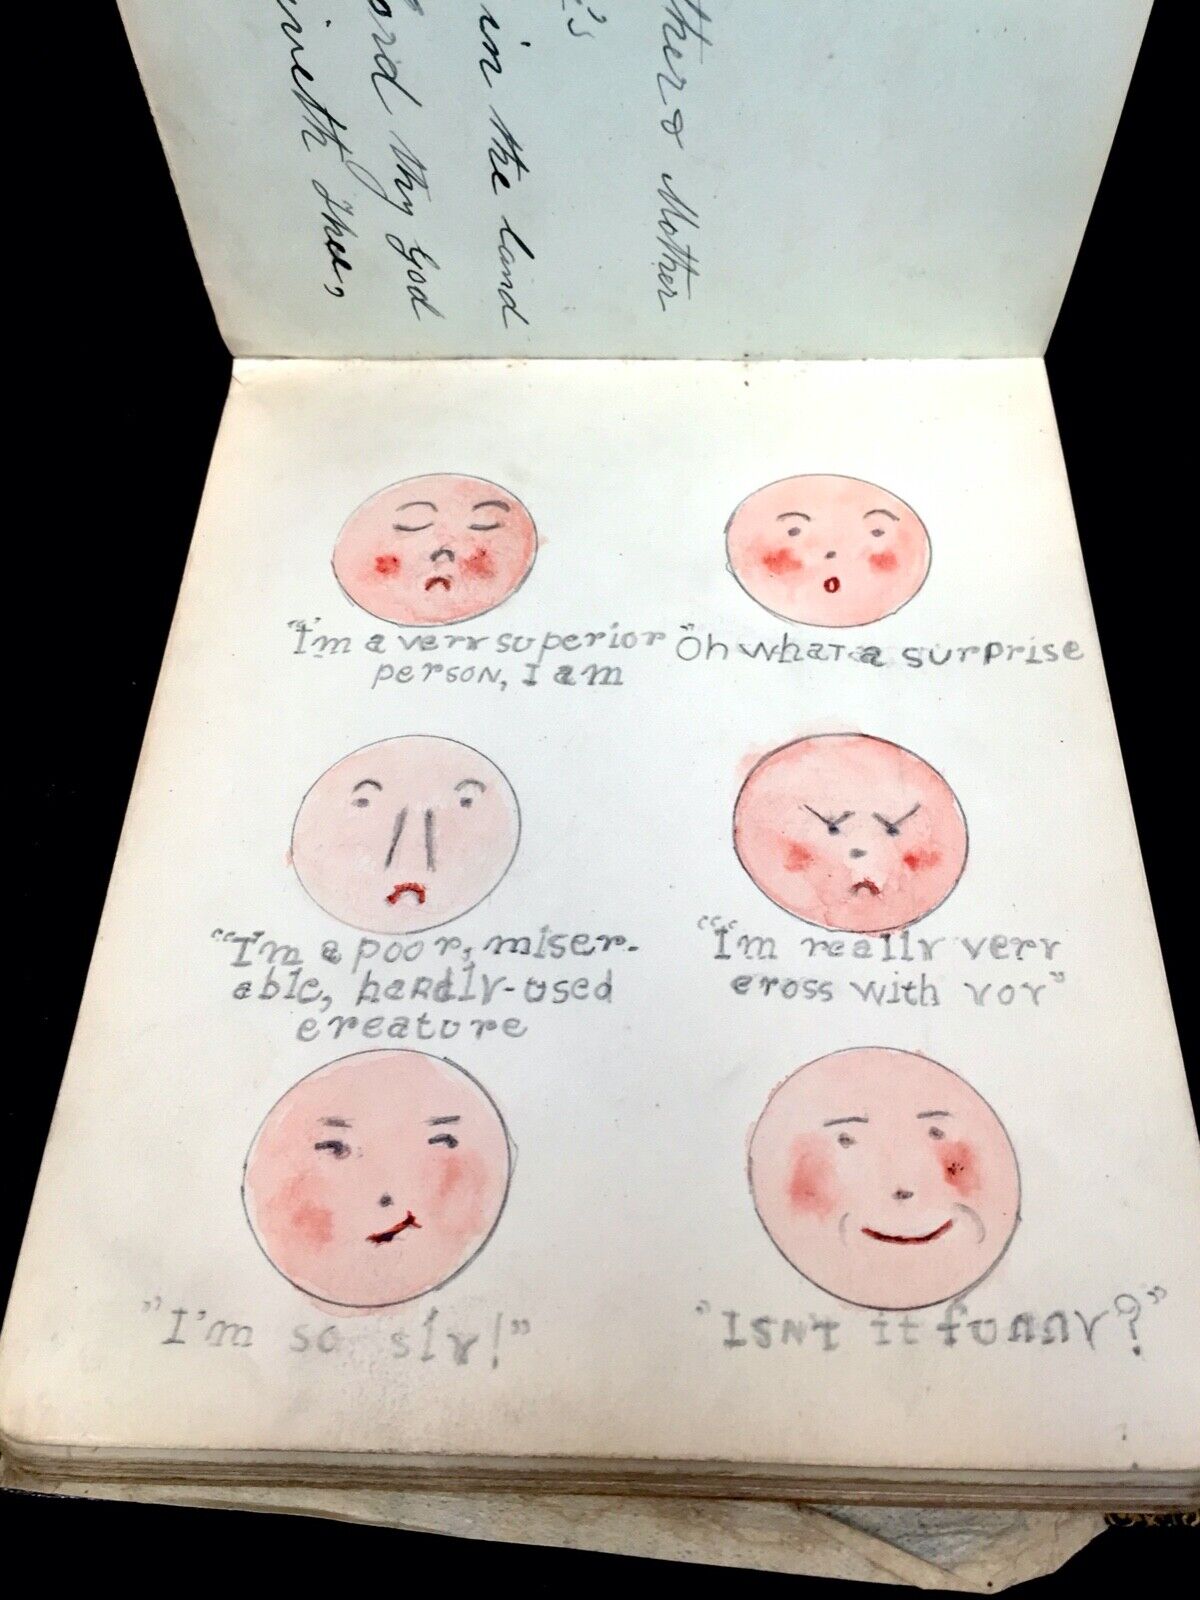 ther & Mother
's
in the land
ord thy God
iveth Thee,
"I'm a very superior
person, I am
"Oh what a surprise
"I'm a poor, miser-
able, hardly-used
creature
"I'm really very
cross with you"
"I'm so sly!"
"Isn't it funny?"